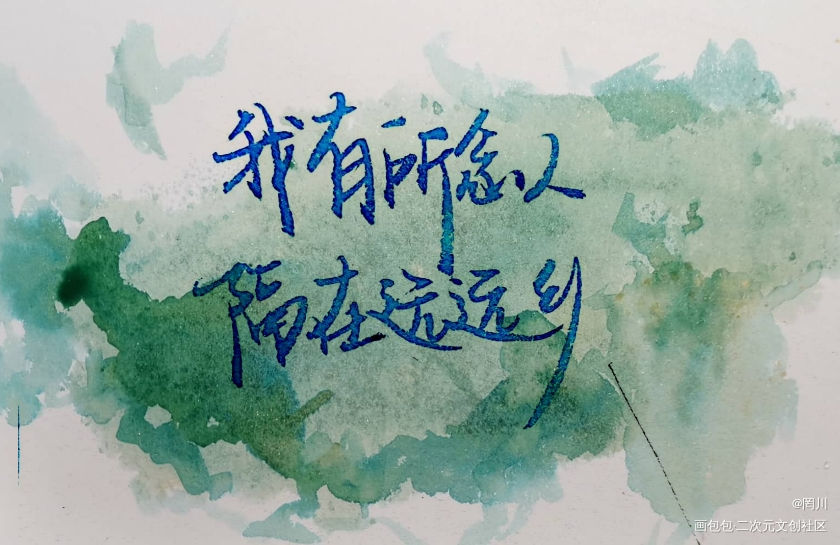 我有所念人
隔在远远乡
@罔川
画包包·二次元文创社区